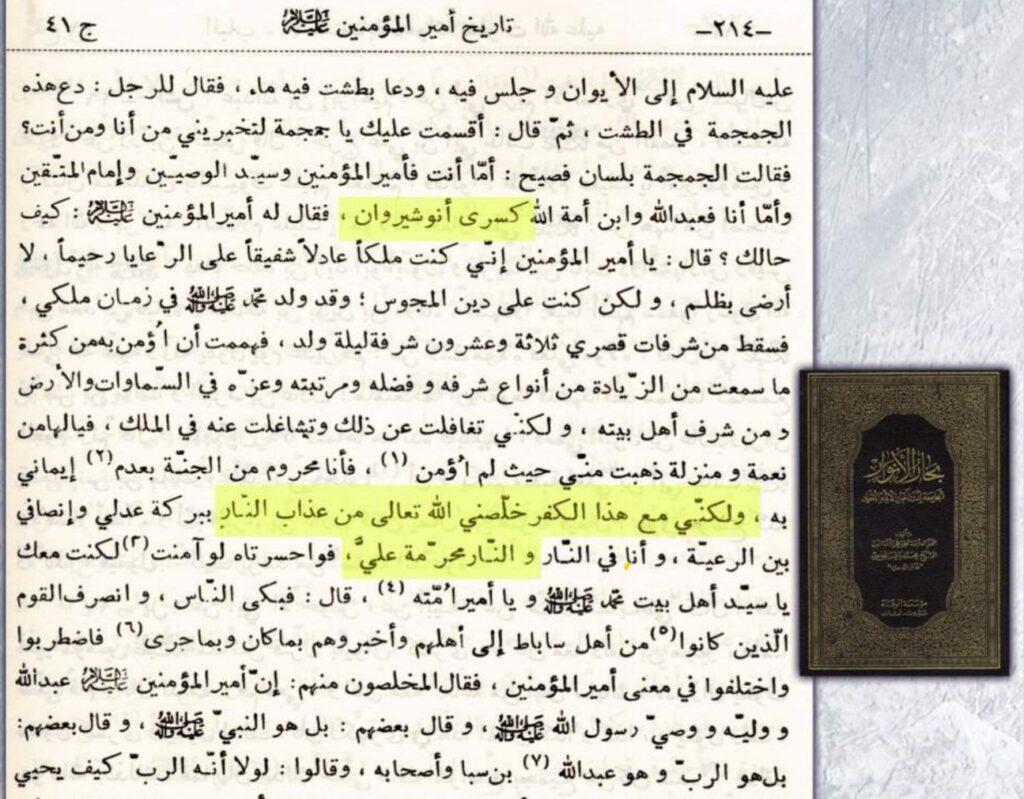 -٢١٤- تاريخ أمير المؤمنين عليه السلام ج ٤١
عليه السلام إلى الأيوان و جلس فيه ، ودعا بطشت فيه ماء ، فقال للرجل : دع هذه
الجمجمة في الطشت ، ثمّ قال : أقسمت عليك يا جمجمة لتخبريني من أنا ومن أنت؟
فقالت الجمجمة بلسان فصيح : أمّا أنت فأمير المؤمنين وسيّد الوصيّين وإمام المتّقين
وأمّا أنا فعبدالله وابن أمة الله كسرى أنوشيروان ، فقال له أمير المؤمنين عليه السلام : كيف
حالك ؟ قال : يا أمير المؤمنين إنّي كنت ملكاً عادلاً شفيقاً على الرّعايا رحيماً ، لا
أرضى بظلم ، و لكن كنت على دين المجوس ؛ وقد ولد محمّد صلى الله عليه وآله في زمان ملكي ،
فسقط من شرفات قصري ثلاثة وعشرون شرفة ليلة ولد ، فهممت أن اُؤمن به من كثرة
ما سمعت من الزّيادة من أنواع شرفه و فضله ومرتبته وعزّه في السّماوات والأرض
و من شرف أهل بيته ، و لكنّي تغافلت عن ذلك وتشاغلت عنه في الملك ، فيالها من
نعمة و منزلة ذهبت منّي حيث لم اُؤمن (١) ، فأنا محروم من الجنّة بعدم (٢) إيماني
به ، ولكنّي مع هذا الكفر خلّصني الله تعالى من عذاب النّار ببركة عدلي وإنصافي
بين الرعيّة ، و أنا في النّار و النّار محرّمة عليَّ ، فواحسرتاه لو آمنت (٣) لكنت معك
يا سيّد أهل بيت محمّد صلى الله عليه وآله و يا أمير اُمّته (٤) ، قال : فبكى النّاس ، و انصرف القوم
الّذين كانوا (٥) من أهل ساباط إلى أهلهم وأخبروهم بما كان وبما جرى (٦) فاضطربوا
واختلفوا في معنى أمير المؤمنين ، فقال المخلصون منهم: إنّ أمير المؤمنين عليه السلام عبدالله
و وليّه و وصيّ رسول الله صلى الله عليه وآله ، و قال بعضهم : بل هو النبيّ صلى الله عليه وآله ، و قال بعضهم:
بل هو الربّ و هو عبدالله (٧) بن سبا وأصحابه ، وقالوا : لولا أنّه الربّ كيف يحيي
بحار الأنوار
الجامعة لدرر أخبار الأئمة الأطهار